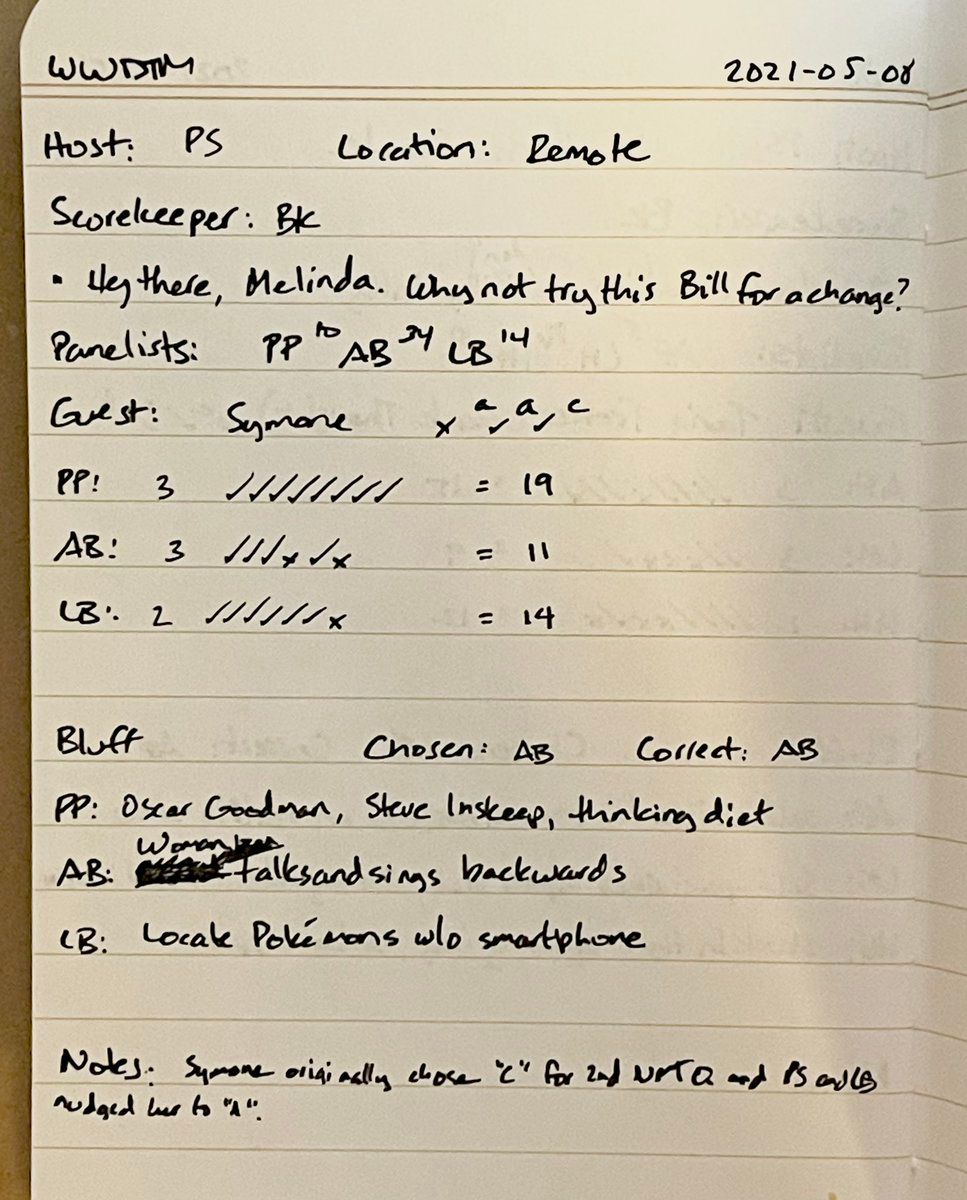 WWDTM 2021-05-08
Host: PS Location: Remote
Scorekeeper: BK
• Hey there, Melinda. Why not try this Bill for a change?
Panelists: PP 10 AB 34 LB 14
Guest: Symone x a ✓ a ✓ c
PP: 3 ✓✓✓✓✓✓✓✓ = 19
AB: 3 ✓✓✓x✓x = 11
LB: 2 ✓✓✓✓✓✓x = 14
Bluff Chosen: AB Correct: AB
PP: Oscar Goodman, Steve Inskeep, thinking diet
Woman
AB: talks and sings backwards
LB: Locate Pokémons w/o smartphone
Notes: Symone originally chose "C" for 2nd NMTQ and PS and LB
nudged her to "A".